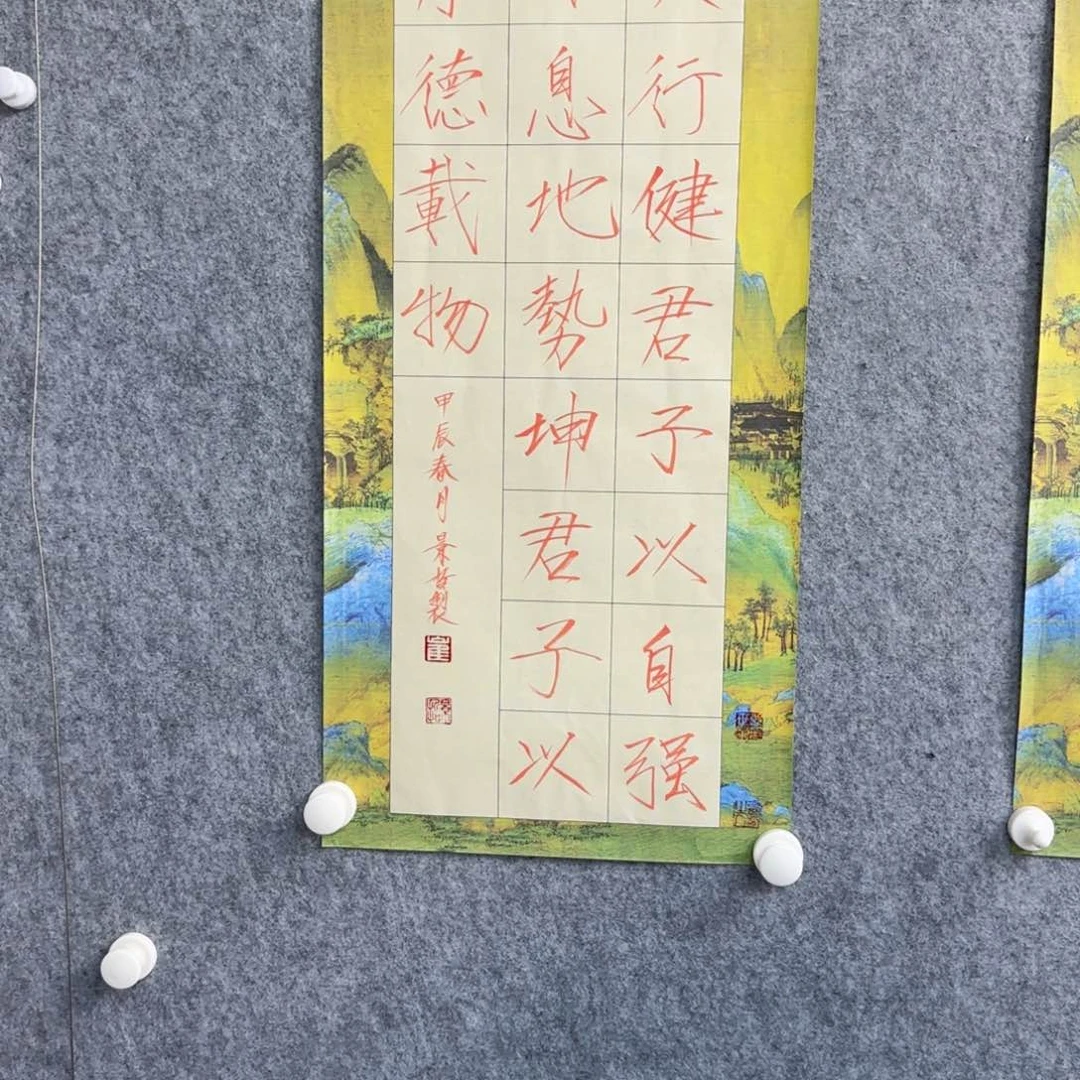 行健君子以自强
息地勢坤君子以
德載物
甲辰春月景哲製